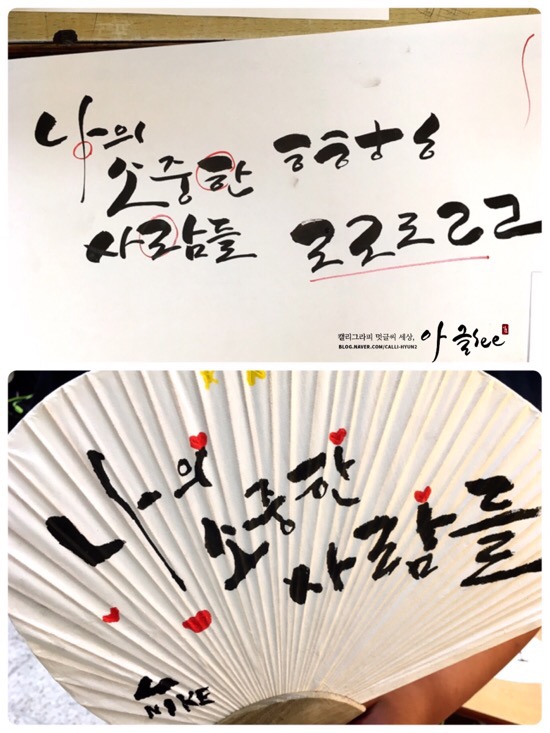 나의
소중한
사람들
ㅎㅎㅎㅎ
로로로ㄹㄹ
캘리그라피 멋글씨 세상,
BLOG.NAVER.COM/CALLI-HYUN2
아글see
나의
소중한
사람들
NIKE